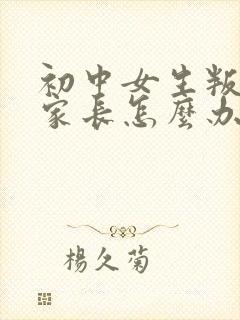 初中女生叛
家長怎麼办
楊久菊